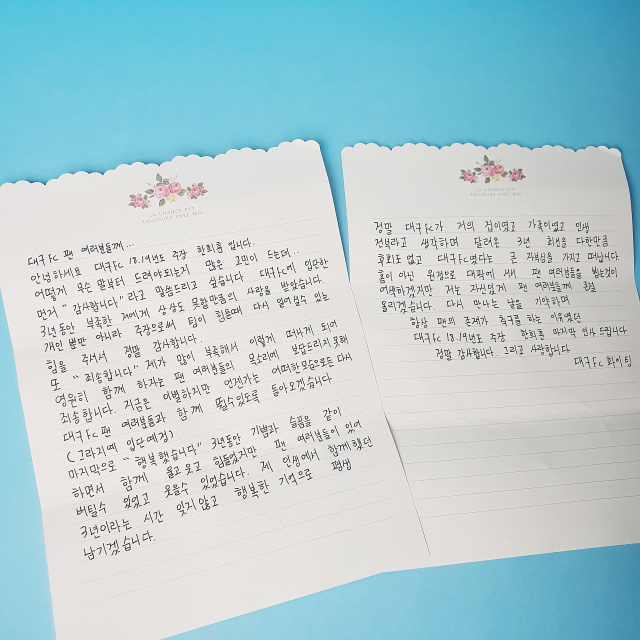 LA CHANCE EST
TOUJOURS AVEC MOI
대구FC 팬 여러분들께...
안녕하세요 대구FC 18.19년도 주장 한희훈 입니다.
어떻게 무슨 말부터 드려야되는지 많은 고민이 드는데...
먼저 "감사합니다" 라고 말씀드리고 싶습니다 대구FC에 입단한
3년동안 부족한 저에게 상상도 못할만큼의 사랑을 받았습니다
개인 뿐만 아니라 주장으로써 팀이 힘들때 다시 일어설수 있는
힘을 주셔서 정말 감사합니다.
또 "죄송합니다" 제가 많이 부족해서 이렇게 떠나게 되어
영원히 함께 하자는 팬 여러분들의 목소리에 보답드리지 못해
죄송합니다. 지금은 이별하지만 언젠가는 어떠한모습으로든 다시
대구FC 팬 여러분들과 함께 뛸수있도록 돌아오겠습니다
(그라지예 입단예정)
마지막으로 "행복했습니다" 3년동안 기쁨과 슬픔을 같이
하면서 함께 울고 웃고 힘들었지만 팬 여러분들이 있어
버틸수 있었고 웃을수 있었습니다. 제 인생에서 함께했던
3년이라는 시간 잊지않고 행복한 기억으로 평생
남기겠습니다.
LA CHANCE EST
TOUJOURS AVEC MOI
정말 대구FC가 저의 집이였고 가족이였고 인생
전부라고 생각하며 달려온 3년 최선을 다한만큼
후회도 없고 대구FC였다는 큰 자부심을 가지고 떠납니다
홈이 아닌 원정으로 대팍에 서서 팬 여러분들을 뵙는것이
어색하겠지만 저는 자신있게 팬 여러분들께 손을
올리겠습니다. 다시 만나는 날을 기약하며
항상 팬의 존재가 축구를 하는 이유였던
대구FC 18.19년도 주장 한희훈 마지막 인사 드립니다
정말 감사합니다. 그리고 사랑합니다
대구FC 화이팅